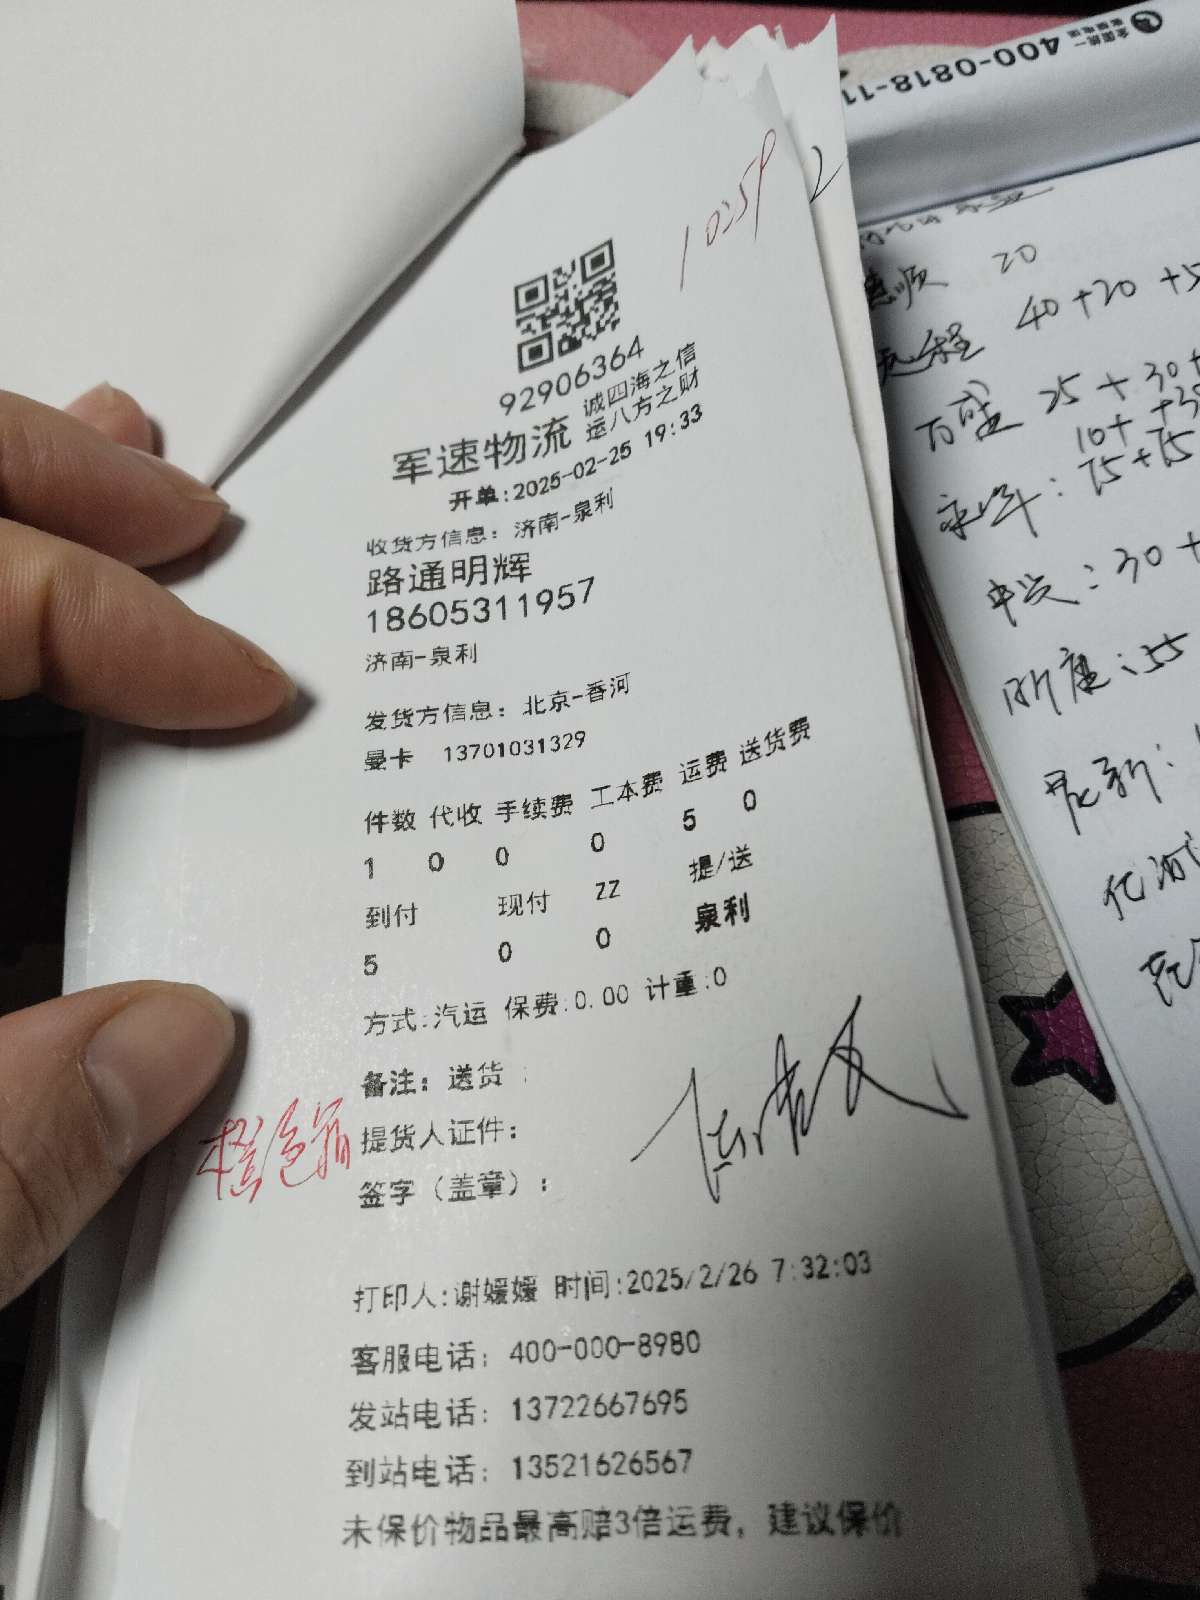 全国统一
客服电话 400-0818-11
1025P
2
92906364
军速物流 诚四海之信
运八方之财
开单:2025-02-25 19:33
收货方信息: 济南-泉利
路通明辉
18605311957
济南-泉利
发货方信息: 北京-香河
曼卡 13701031329
件数 代收 手续费 工本费 运费 送货费
1 0 0 0 5 0
到付 现付 ZZ 提/送
5 0 0 泉利
方式:汽运 保费:0.00 计重:0
备注: 送货
橙色箱
提货人证件:
签字（盖章）:
打印人:谢媛媛 时间:2025/2/26 7:32:03
客服电话: 400-000-8980
发站电话: 13722667695
到站电话: 13521626567
未保价物品最高赔3倍运费, 建议保价
顺 20
远程 40+20+5
百盛 25+30+
10+ +30
永年: 75+75
中兴: 30+
明鹿: 55
最新: